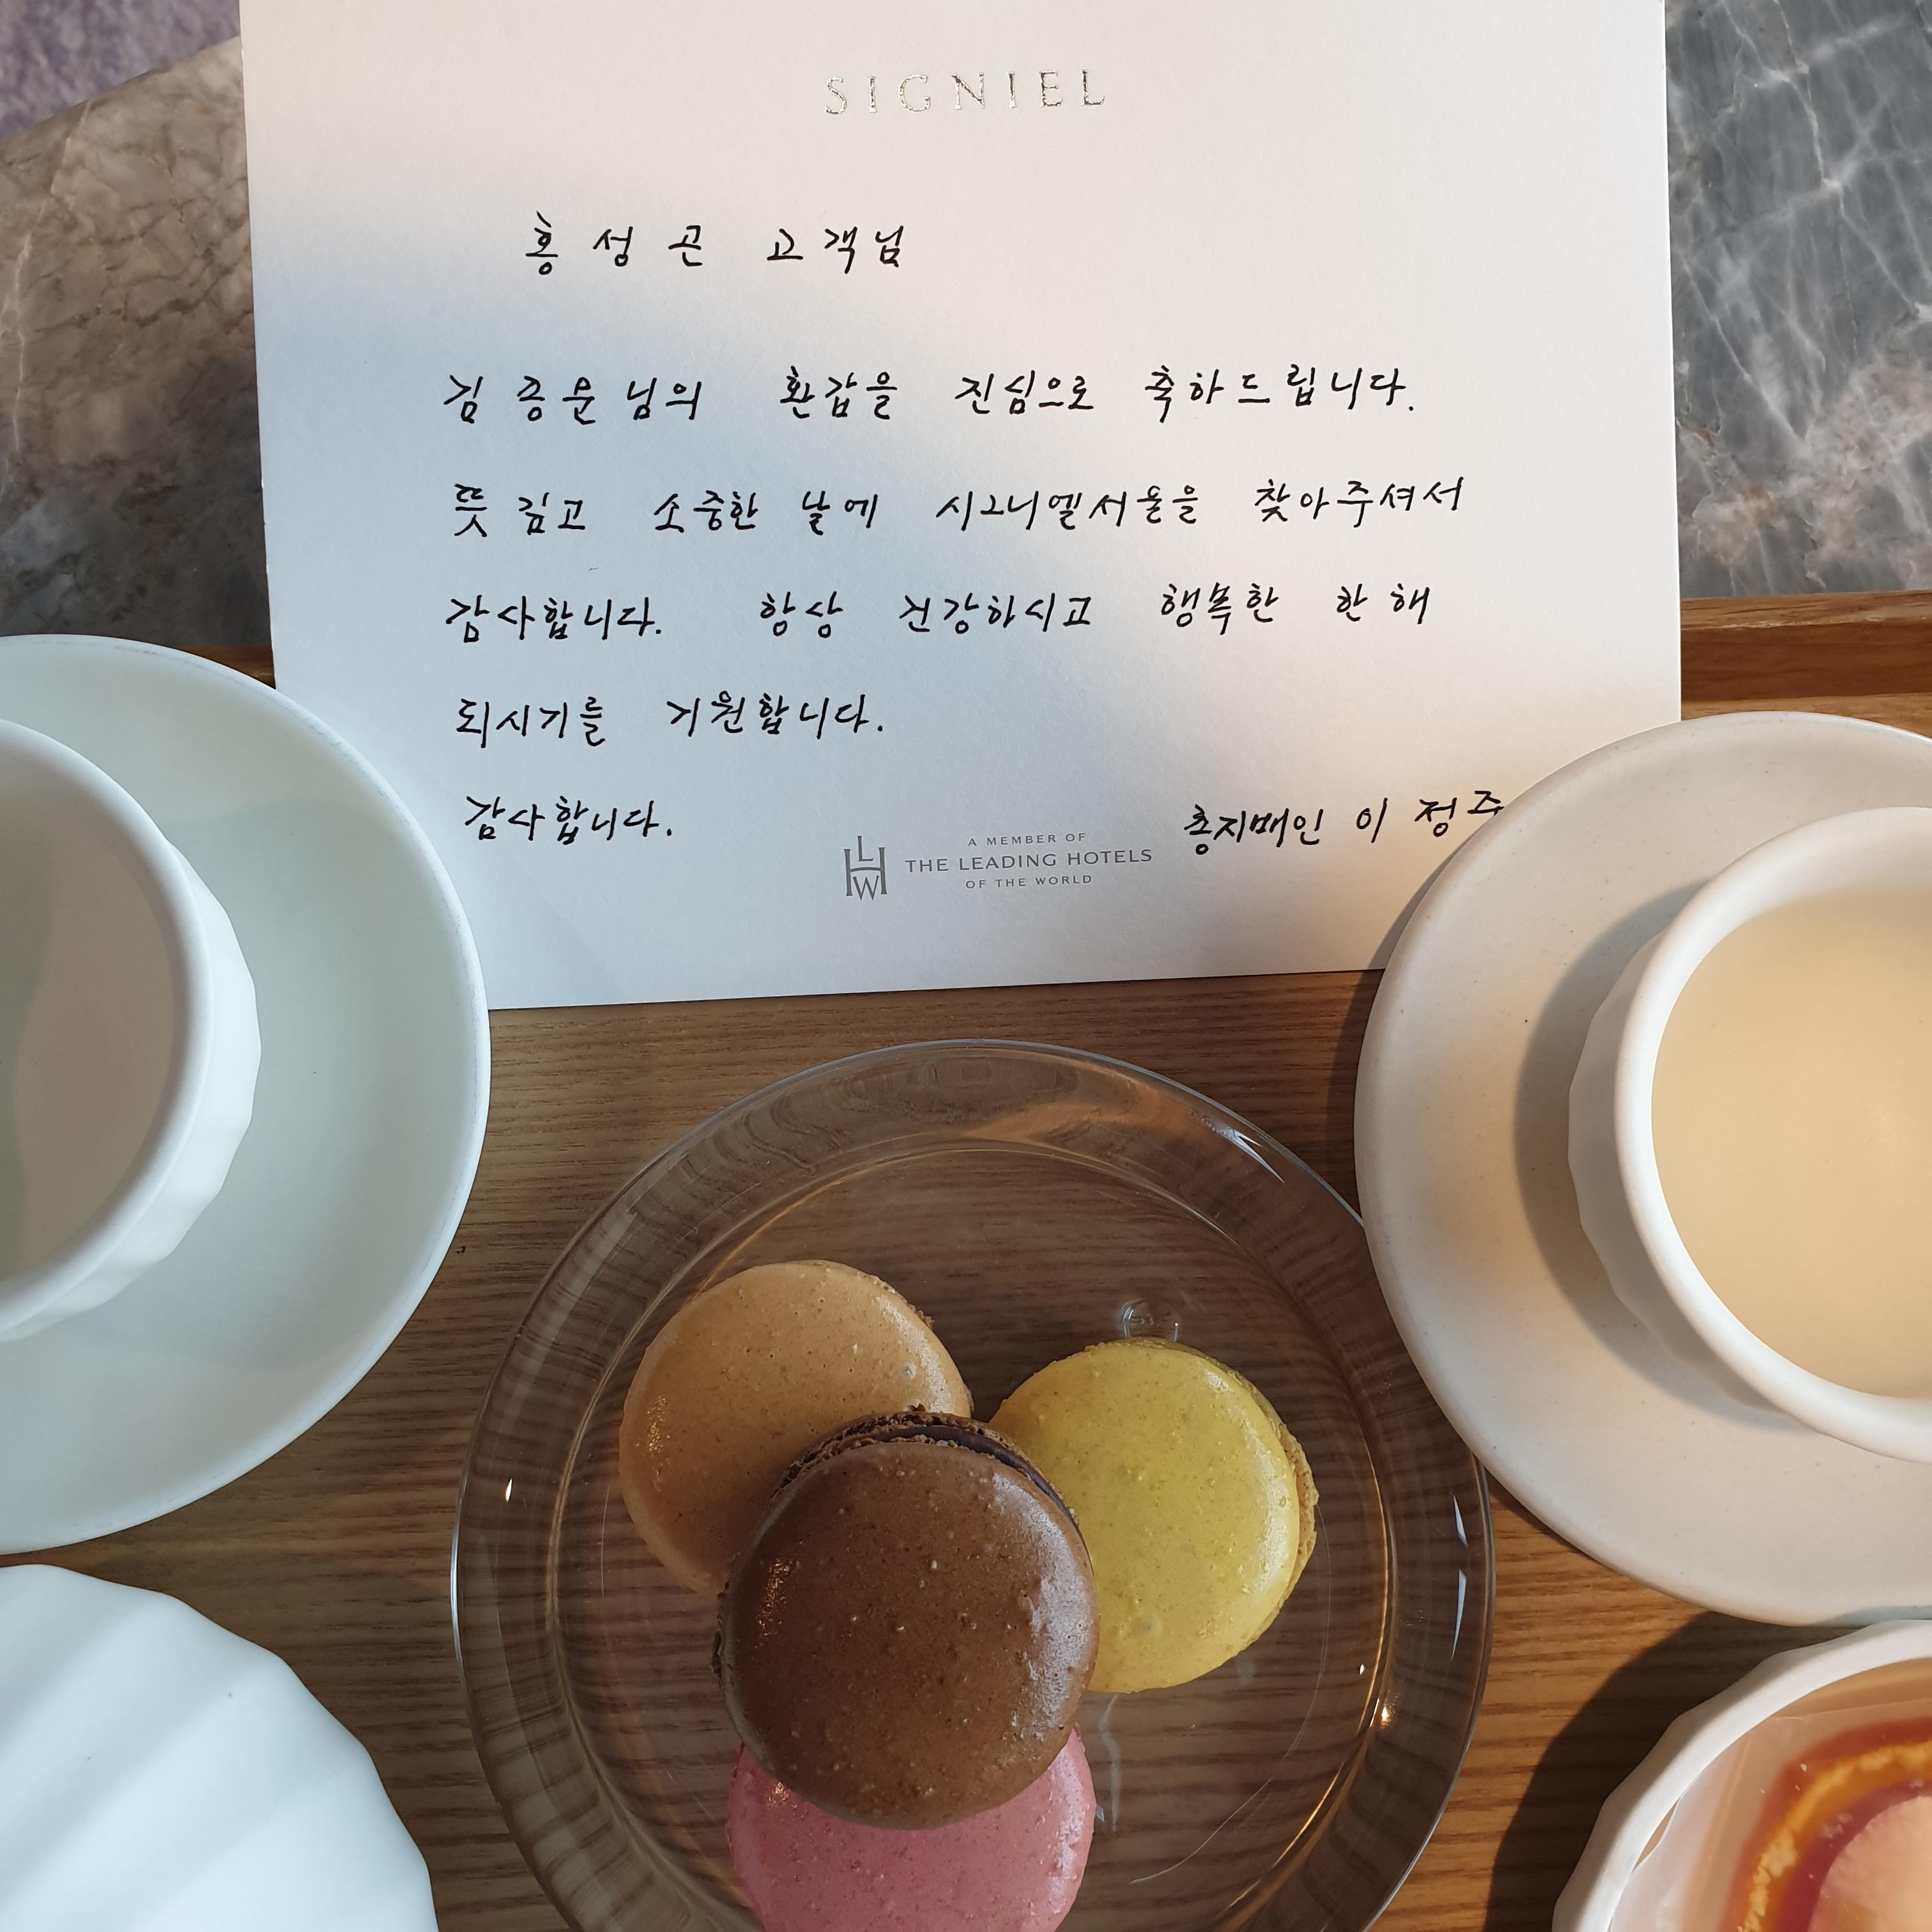 SIGNIEL
홍성곤 고객님
김종문님의 환갑을 진심으로 축하드립니다.
뜻 깊고 소중한 날에 시그니엘서울을 찾아주셔서
감사합니다. 항상 건강하시고 행복한 한 해
되시기를 기원합니다.
감사합니다.
총지배인 이 정주
LHW
A MEMBER OF
THE LEADING HOTELS
OF THE WORLD